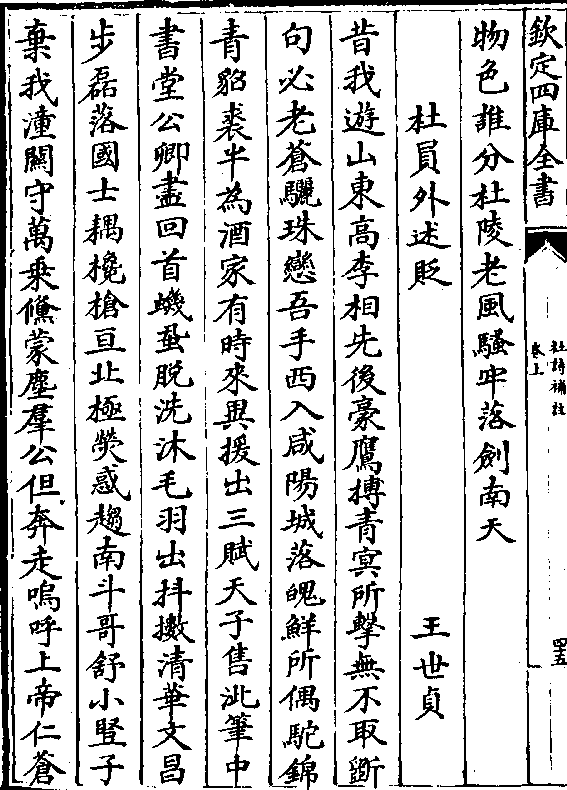 欽定四庫全書
杜詩補註
卷上
四五
物色誰分杜陵老風騷牢落劍南天
杜員外述貶 王世貞
昔我遊山東高李相先後豪鷹搏青冥所擊無不取斷
句必老蒼驪珠戀吾手西入咸陽城落魄鮮所偶駝錦
青貂裘半為酒家有時來異援出三賦天子售泚筆中
書堂公卿盡回首蟣蝨脫洗沐毛羽出抖擻清華文昌
步磊落國士耦欃槍亘北極熒惑趨南斗哥舒小豎子
棄我潼關守萬乗儵蒙塵羣公但奔走嗚呼上帝仁蒼